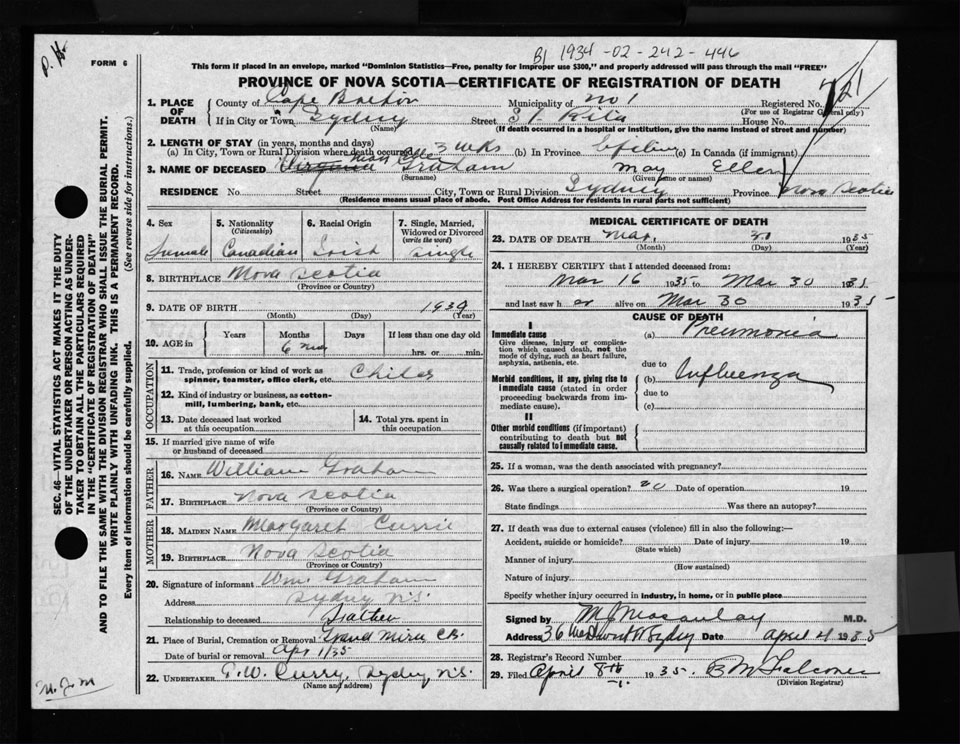 D. H.
B1 1934-02-242-446
FORM 6
This form if placed in an envelope, marked "Dominion Statistics—Free, penalty for improper use $300," and properly addressed will pass through the mail "FREE"
PROVINCE OF NOVA SCOTIA—CERTIFICATE OF REGISTRATION OF DEATH
721
1. PLACE OF DEATH
County of Cape Breton Municipality of No 1 Registered No.
(For use of Registrar General only)
If in City or Town Sydney Street St Rita House No.
(Name) (If death occurred in a hospital or institution, give the name instead of street and number)
2. LENGTH OF STAY (in years, months and days)
(a) In City, Town or Rural Division where death occurred 3 wks (b) In Province Lifetime (c) In Canada (if immigrant)
3. NAME OF DECEASED Virginia Graham May Ellen
(Surname) (Given name or names)
RESIDENCE No. Street City, Town or Rural Division Sydney Province Nova Scotia
(Residence means usual place of abode. Post Office Address for residents in rural parts not sufficient)
4. Sex Female
5. Nationality (Citizenship) Canadian
6. Racial Origin Irish
7. Single, Married, Widowed or Divorced (write the word) Single
8. BIRTHPLACE Nova Scotia
(Province or Country)
9. DATE OF BIRTH 1934
(Month) (Day) (Year)
10. AGE in Years Months Days If less than one day old
6 mos hrs. or min.
OCCUPATION
11. Trade, profession or kind of work as spinner, teamster, office clerk, etc. Child
12. Kind of industry or business, as cotton-mill, lumbering, bank, etc.
13. Date deceased last worked at this occupation
14. Total yrs. spent in this occupation
15. If married give name of wife or husband of deceased
FATHER
16. NAME William Graham
17. BIRTHPLACE Nova Scotia
(Province or Country)
MOTHER
18. MAIDEN NAME Margaret Currie
19. BIRTHPLACE Nova Scotia
(Province or Country)
20. Signature of informant Wm. Graham
Address Sydney N.S.
Relationship to deceased Father
21. Place of Burial, Cremation or Removal Grand Mira C.B.
Date of burial or removal Apr 1/35
22. UNDERTAKER T. W. Curry, Sydney N.S.
(Name and address)
MEDICAL CERTIFICATE OF DEATH
23. DATE OF DEATH Mar. 30 1935
(Month) (Day) (Year)
24. I HEREBY CERTIFY that I attended deceased from:
Mar 16 1935 to Mar 30 1935
and last saw h er alive on Mar 30 1935
CAUSE OF DEATH
I
Immediate cause
Give disease, injury or complication which caused death, not the mode of dying, such as heart failure, asphyxia, asthenia, etc.
(a) Pneumonia
due to
Morbid conditions, if any, giving rise to immediate cause (stated in order proceeding backwards from immediate cause).
(b) Influenza
due to
(c)
II
Other morbid conditions (if important) contributing to death but not causally related to immediate cause.
25. If a woman, was the death associated with pregnancy?
26. Was there a surgical operation? no Date of operation 19
State findings Was there an autopsy?
27. If death was due to external causes (violence) fill in also the following:—
Accident, suicide or homicide? Date of injury 19
(State which)
Manner of injury
(How sustained)
Nature of injury
Specify whether injury occurred in industry, in home, or in public place
Signed by M. J. Macaulay M.D.
Address 36 Sydney Date April 4 1935
28. Registrar's Record Number
29. Filed April 8th 1935. B. M. Falconer
(Division Registrar)
SEC. 46—VITAL STATISTICS ACT MAKES IT THE DUTY
OF THE UNDERTAKER OR PERSON ACTING AS UNDER-
TAKER TO OBTAIN ALL THE PARTICULARS REQUIRED
IN THE "CERTIFICATE OF REGISTRATION OF DEATH"
AND TO FILE THE SAME WITH THE DIVISION REGISTRAR WHO SHALL ISSUE THE BURIAL PERMIT.
WRITE PLAINLY WITH UNFADING INK. THIS IS A PERMANENT RECORD.
Every item of information should be carefully supplied. (See reverse side for instructions.)
M. J. M